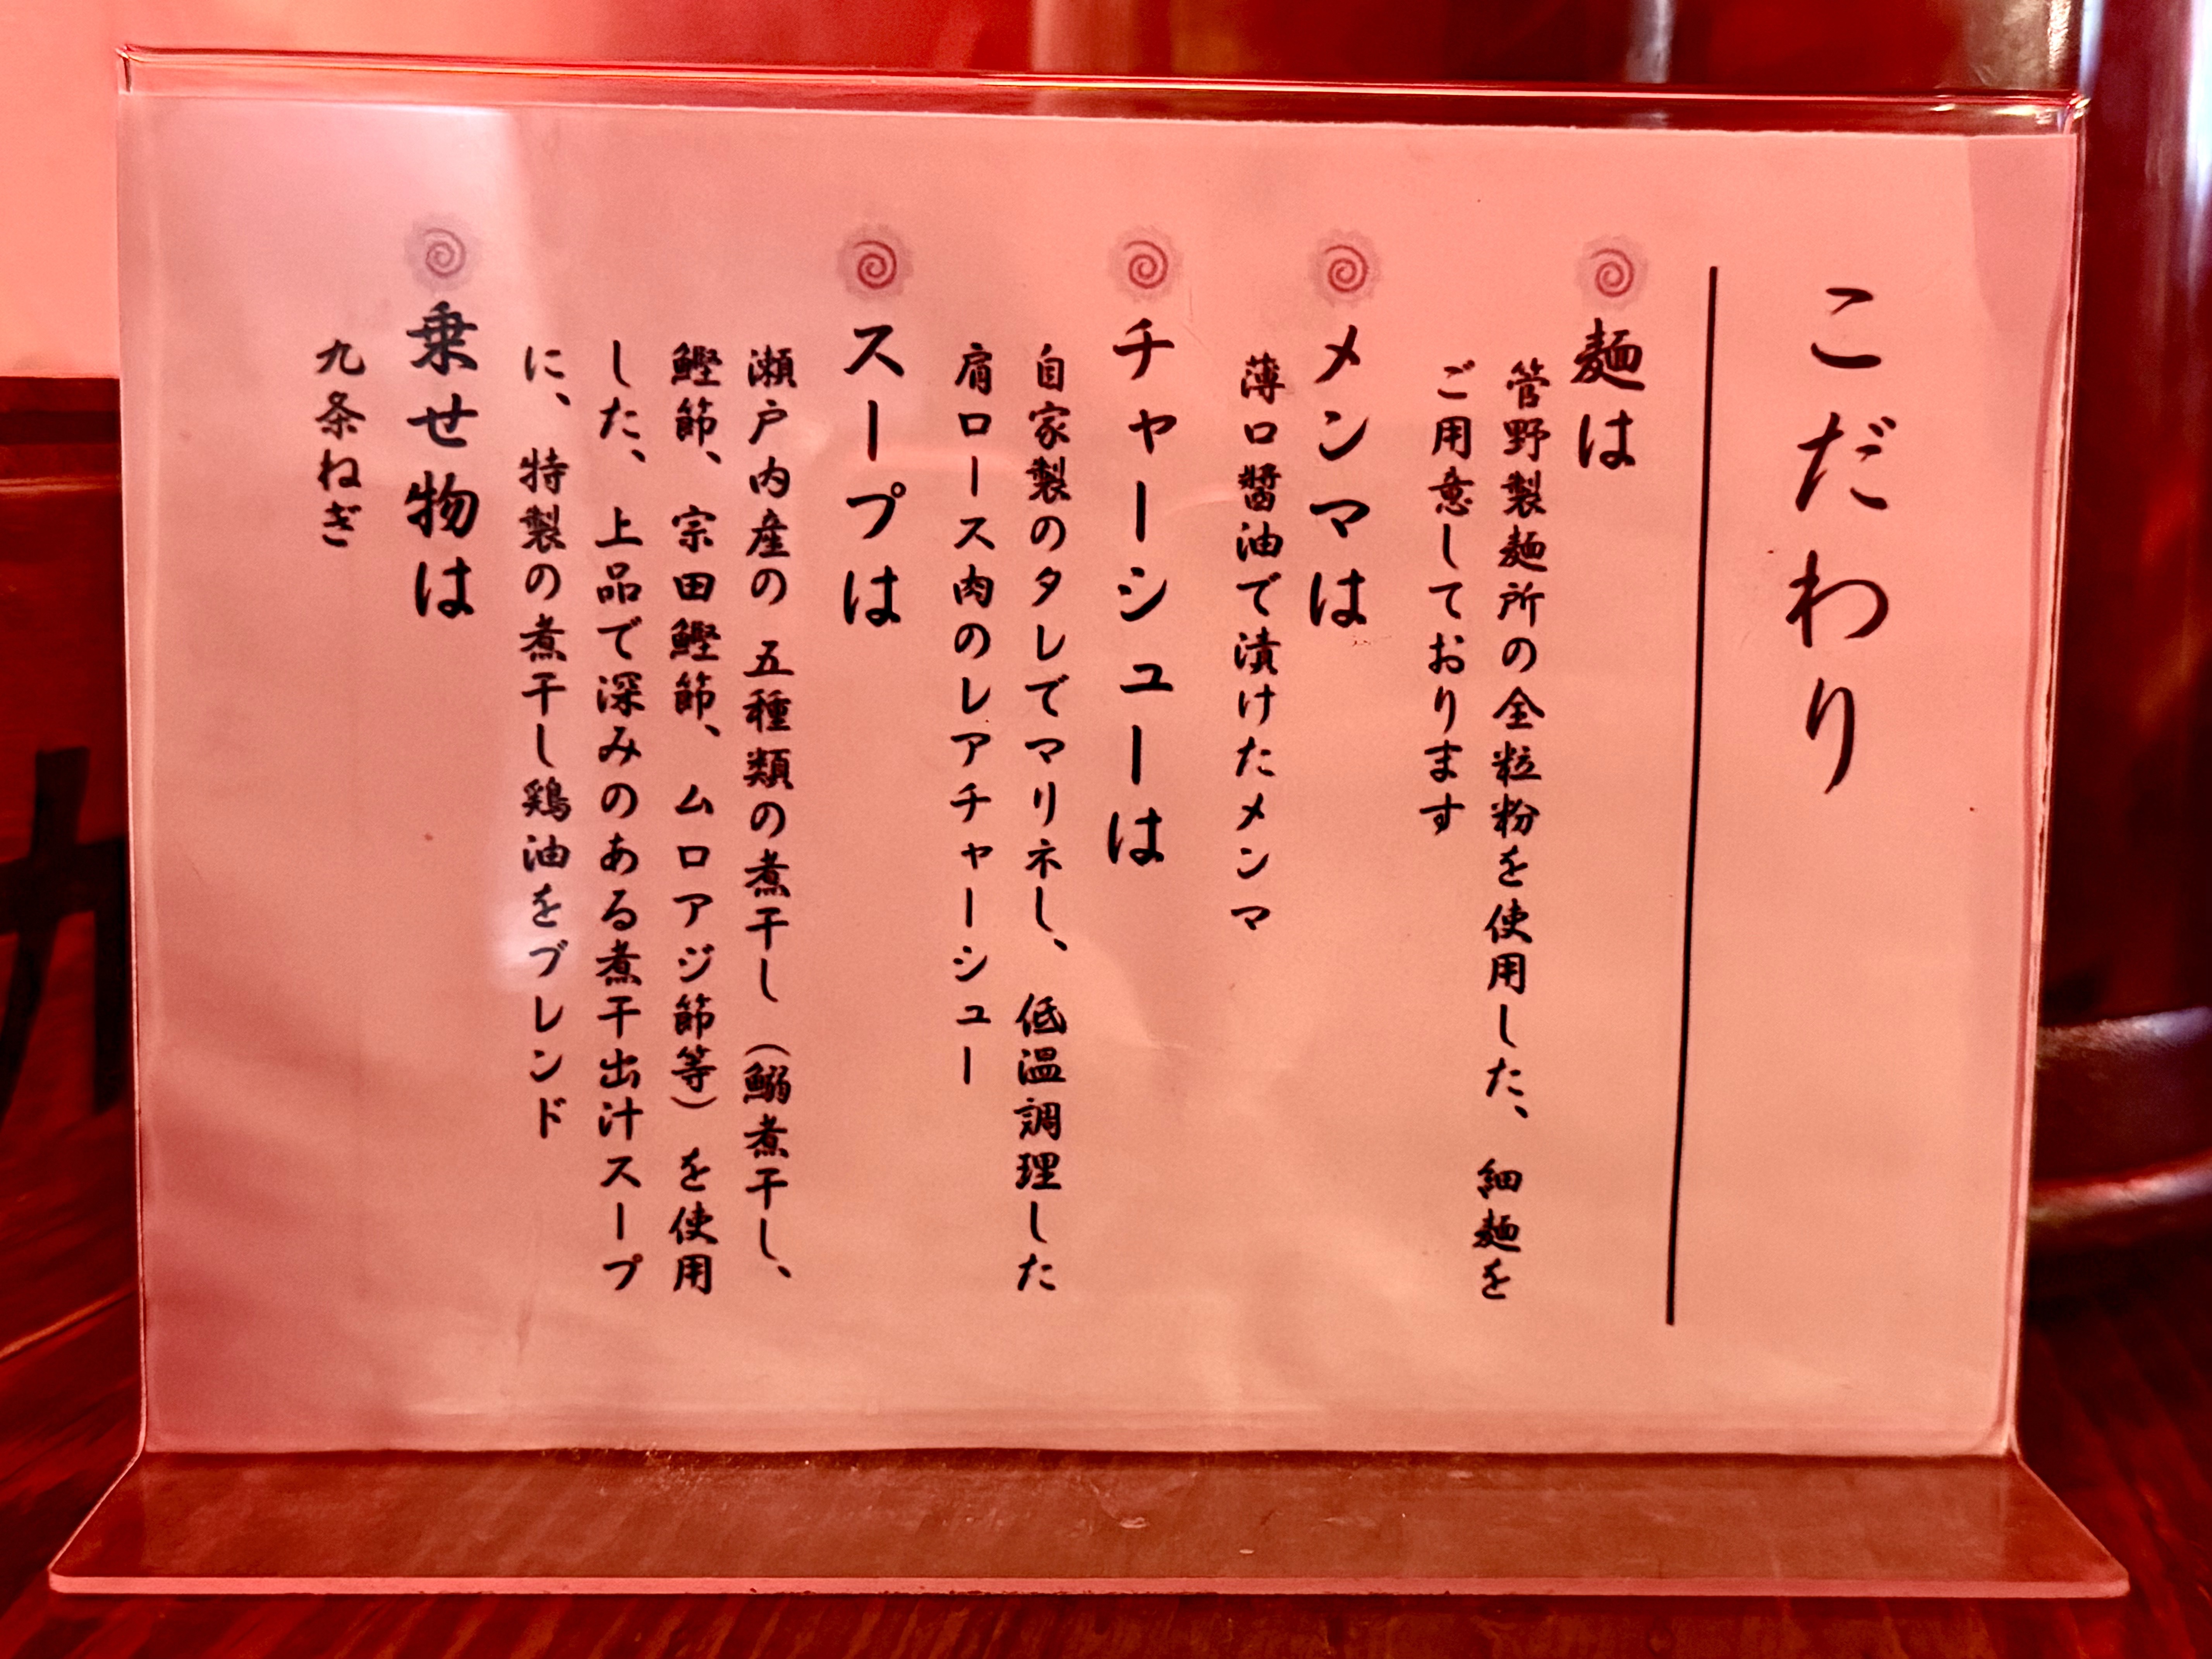 こだわり
麺は
管野製麺所の全粒粉を使用した、細麺を
ご用意しております
メンマは
薄口醤油で漬けたメンマ
チャーシューは
自家製のタレでマリネし、低温調理した
肩ロース肉のレアチャーシュー
スープは
瀬戸内産の五種類の煮干し（鰯煮干し、
鰹節、宗田鰹節、ムロアジ節等）を使用
した、上品で深みのある煮干出汁スープ
に、特製の煮干し鶏油をブレンド
乗せ物は
九条ねぎ